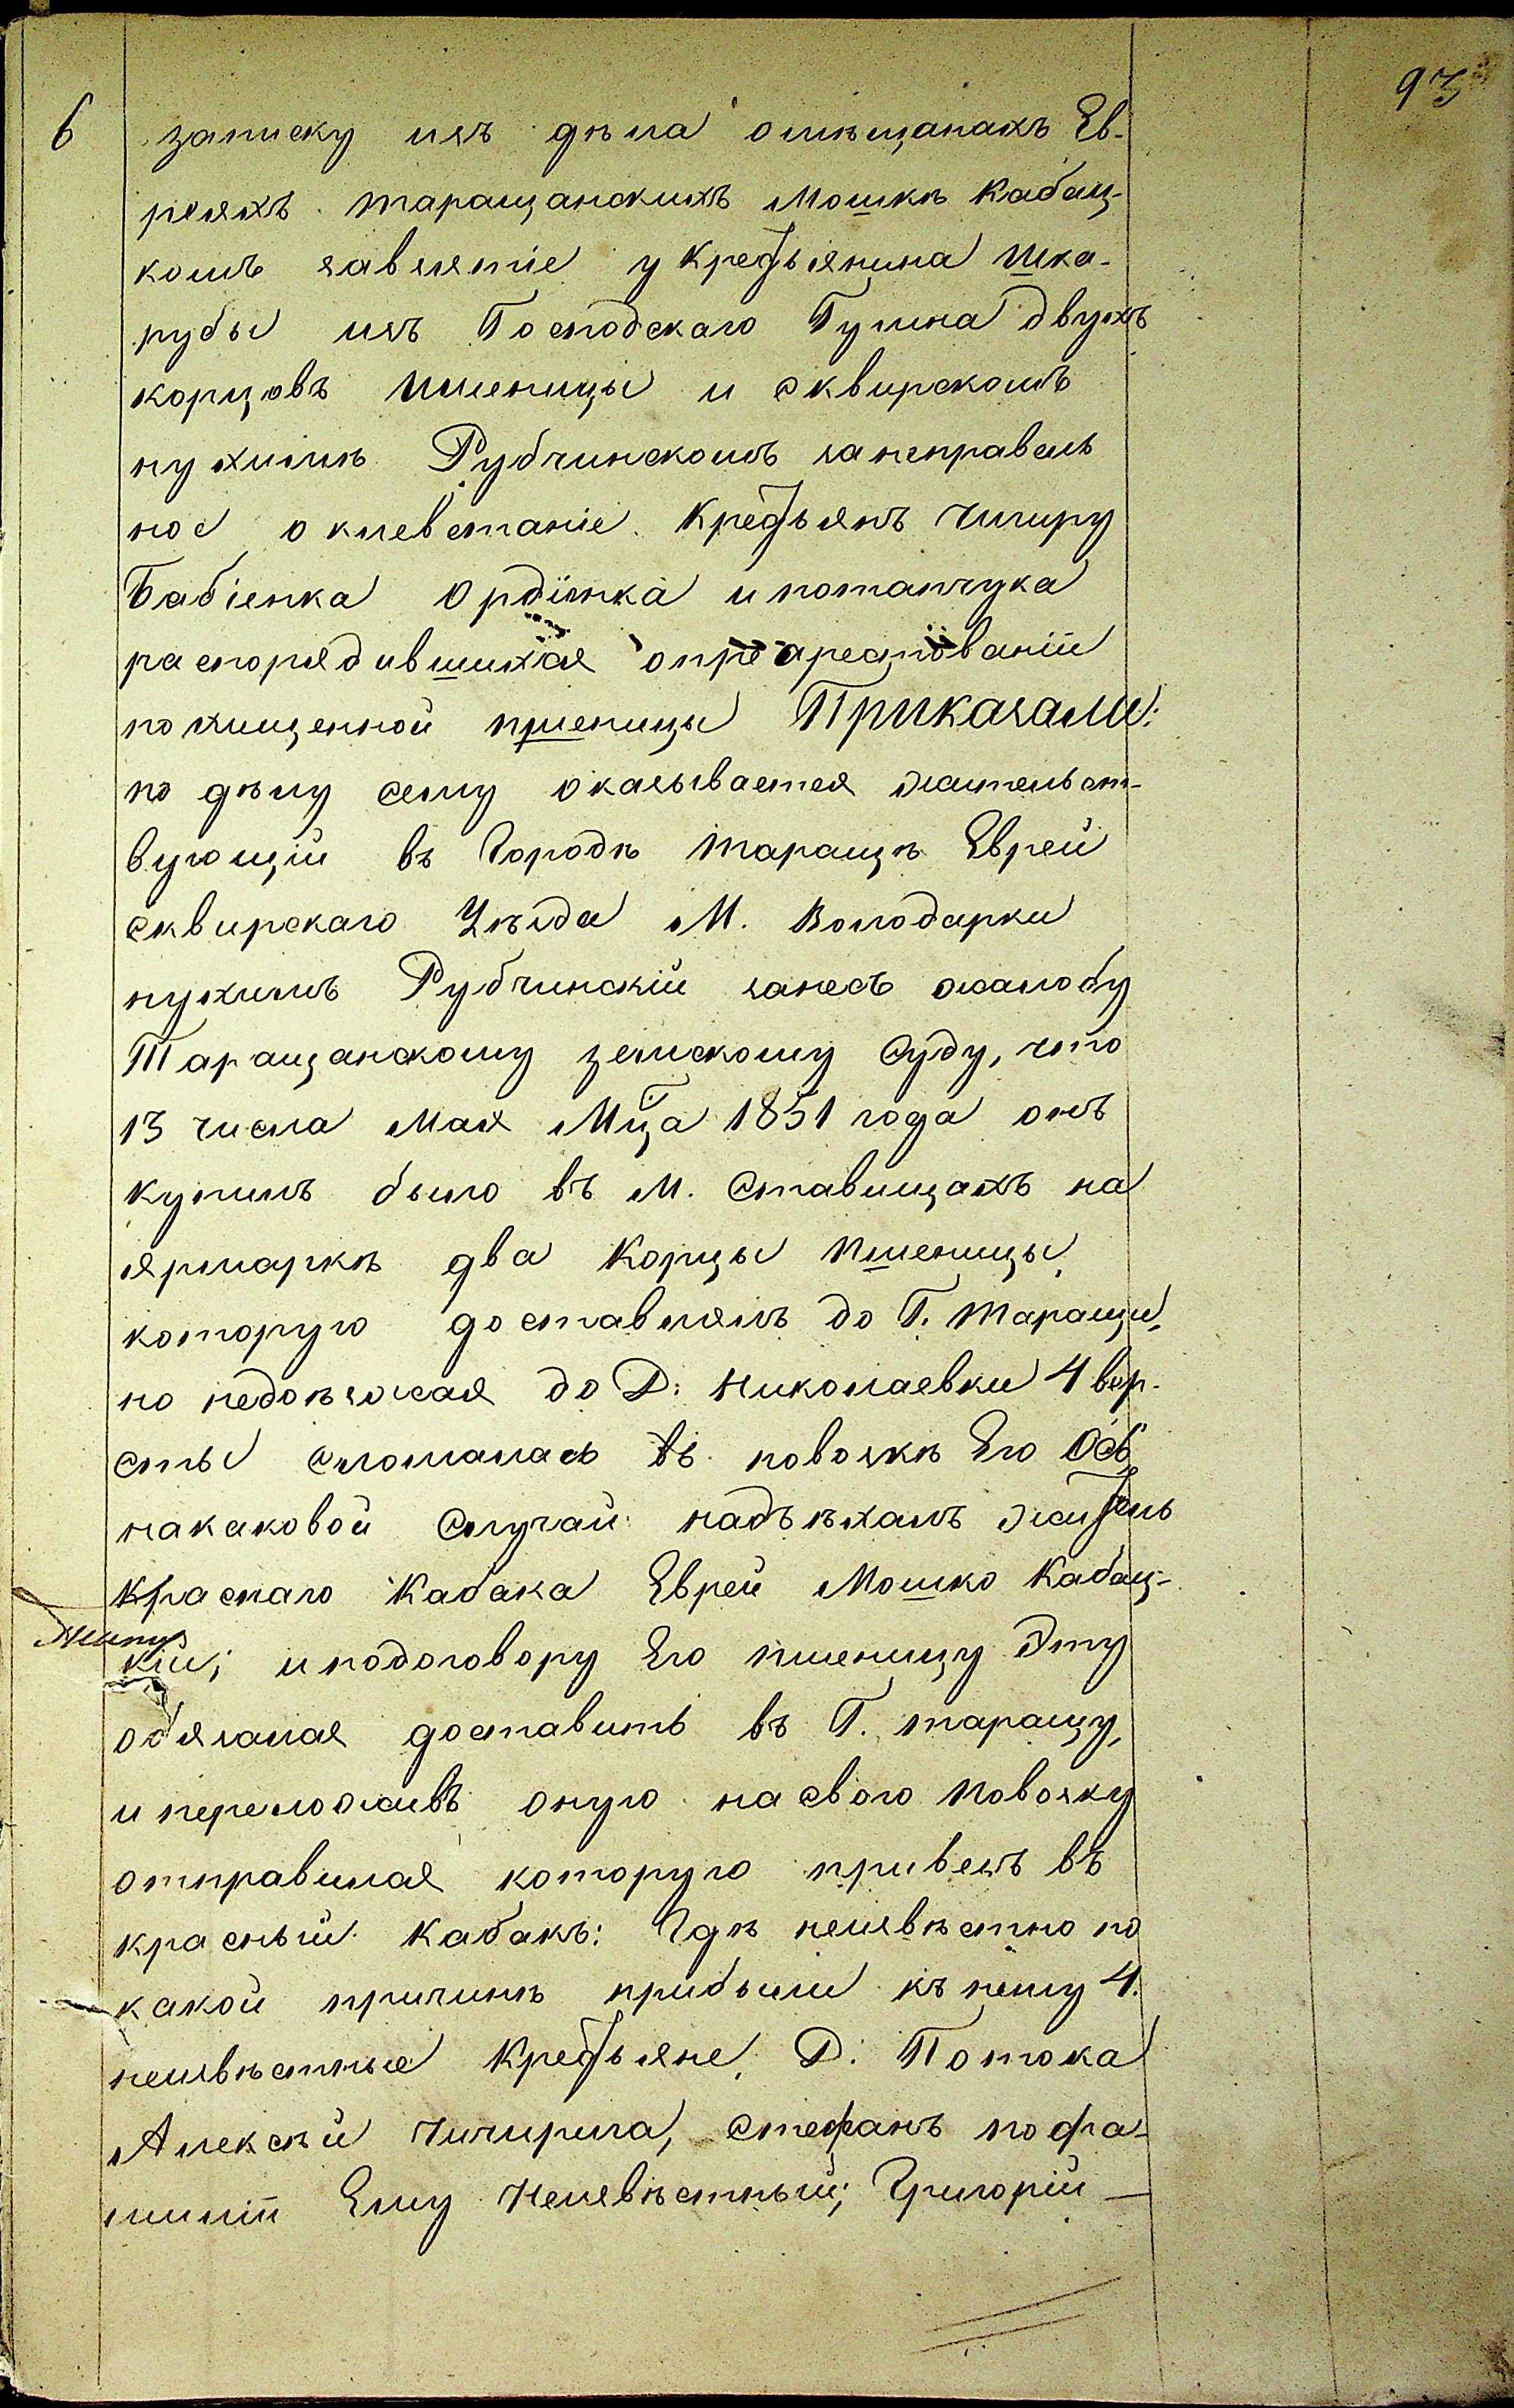 97
6 записку изъ дѣла омѣщанахъ Ев-
реяхъ таращанскихъ Мошкѣ Кабац-
комъ завзятіе у Крестьянина Шка-
рубы изъ Господскаго Гумна двухъ
корцовъ пшеницы и сквирскомъ
нухимѣ Рубчинскомъ занеправель
ное оклеветаніе Крестьянъ Чигиру
Бабіенка Ордінка и потапчука
распорядившихся опреарестованіи
похищенной пшеницы Приказали:
по дѣлу сему оказывается жительст-
вующій въ Городѣ таращѣ Еврей
сквирскаго Уѣзда М. Володарки
нухимъ Рубчинскій занесъ жалобу
Таращанскому земскому Суду, что
13 числа Мая Мца 1851 года онъ
купилъ было въ М. Ставищахъ на
ярмаркѣ два Корцы Пшеницы,
которую доставлялъ до Г. Таращи,
но недоѣзжая до Д: Николаевки 4 вер-
сты сломалась въ повозкѣ Его Ось,
накаковой Случай надъѣхалъ житель
Краснаго Кабака Еврей Мошко Кабац-
кій; иподоговору Его пшеницу Эту
обязался доставить въ Г. таращу,
и переложивъ оную на свою Повозку
отправился которую привезъ въ
красный Кабакъ: Гдѣ неизвѣстно по
какой причинѣ прибыли къ нему 4.
неизвѣстные Крестьяне, Д: Потока
Алексѣй Чигирина, Стефанъ по фа-
миліи Ему Неизвѣстный; Григорій —